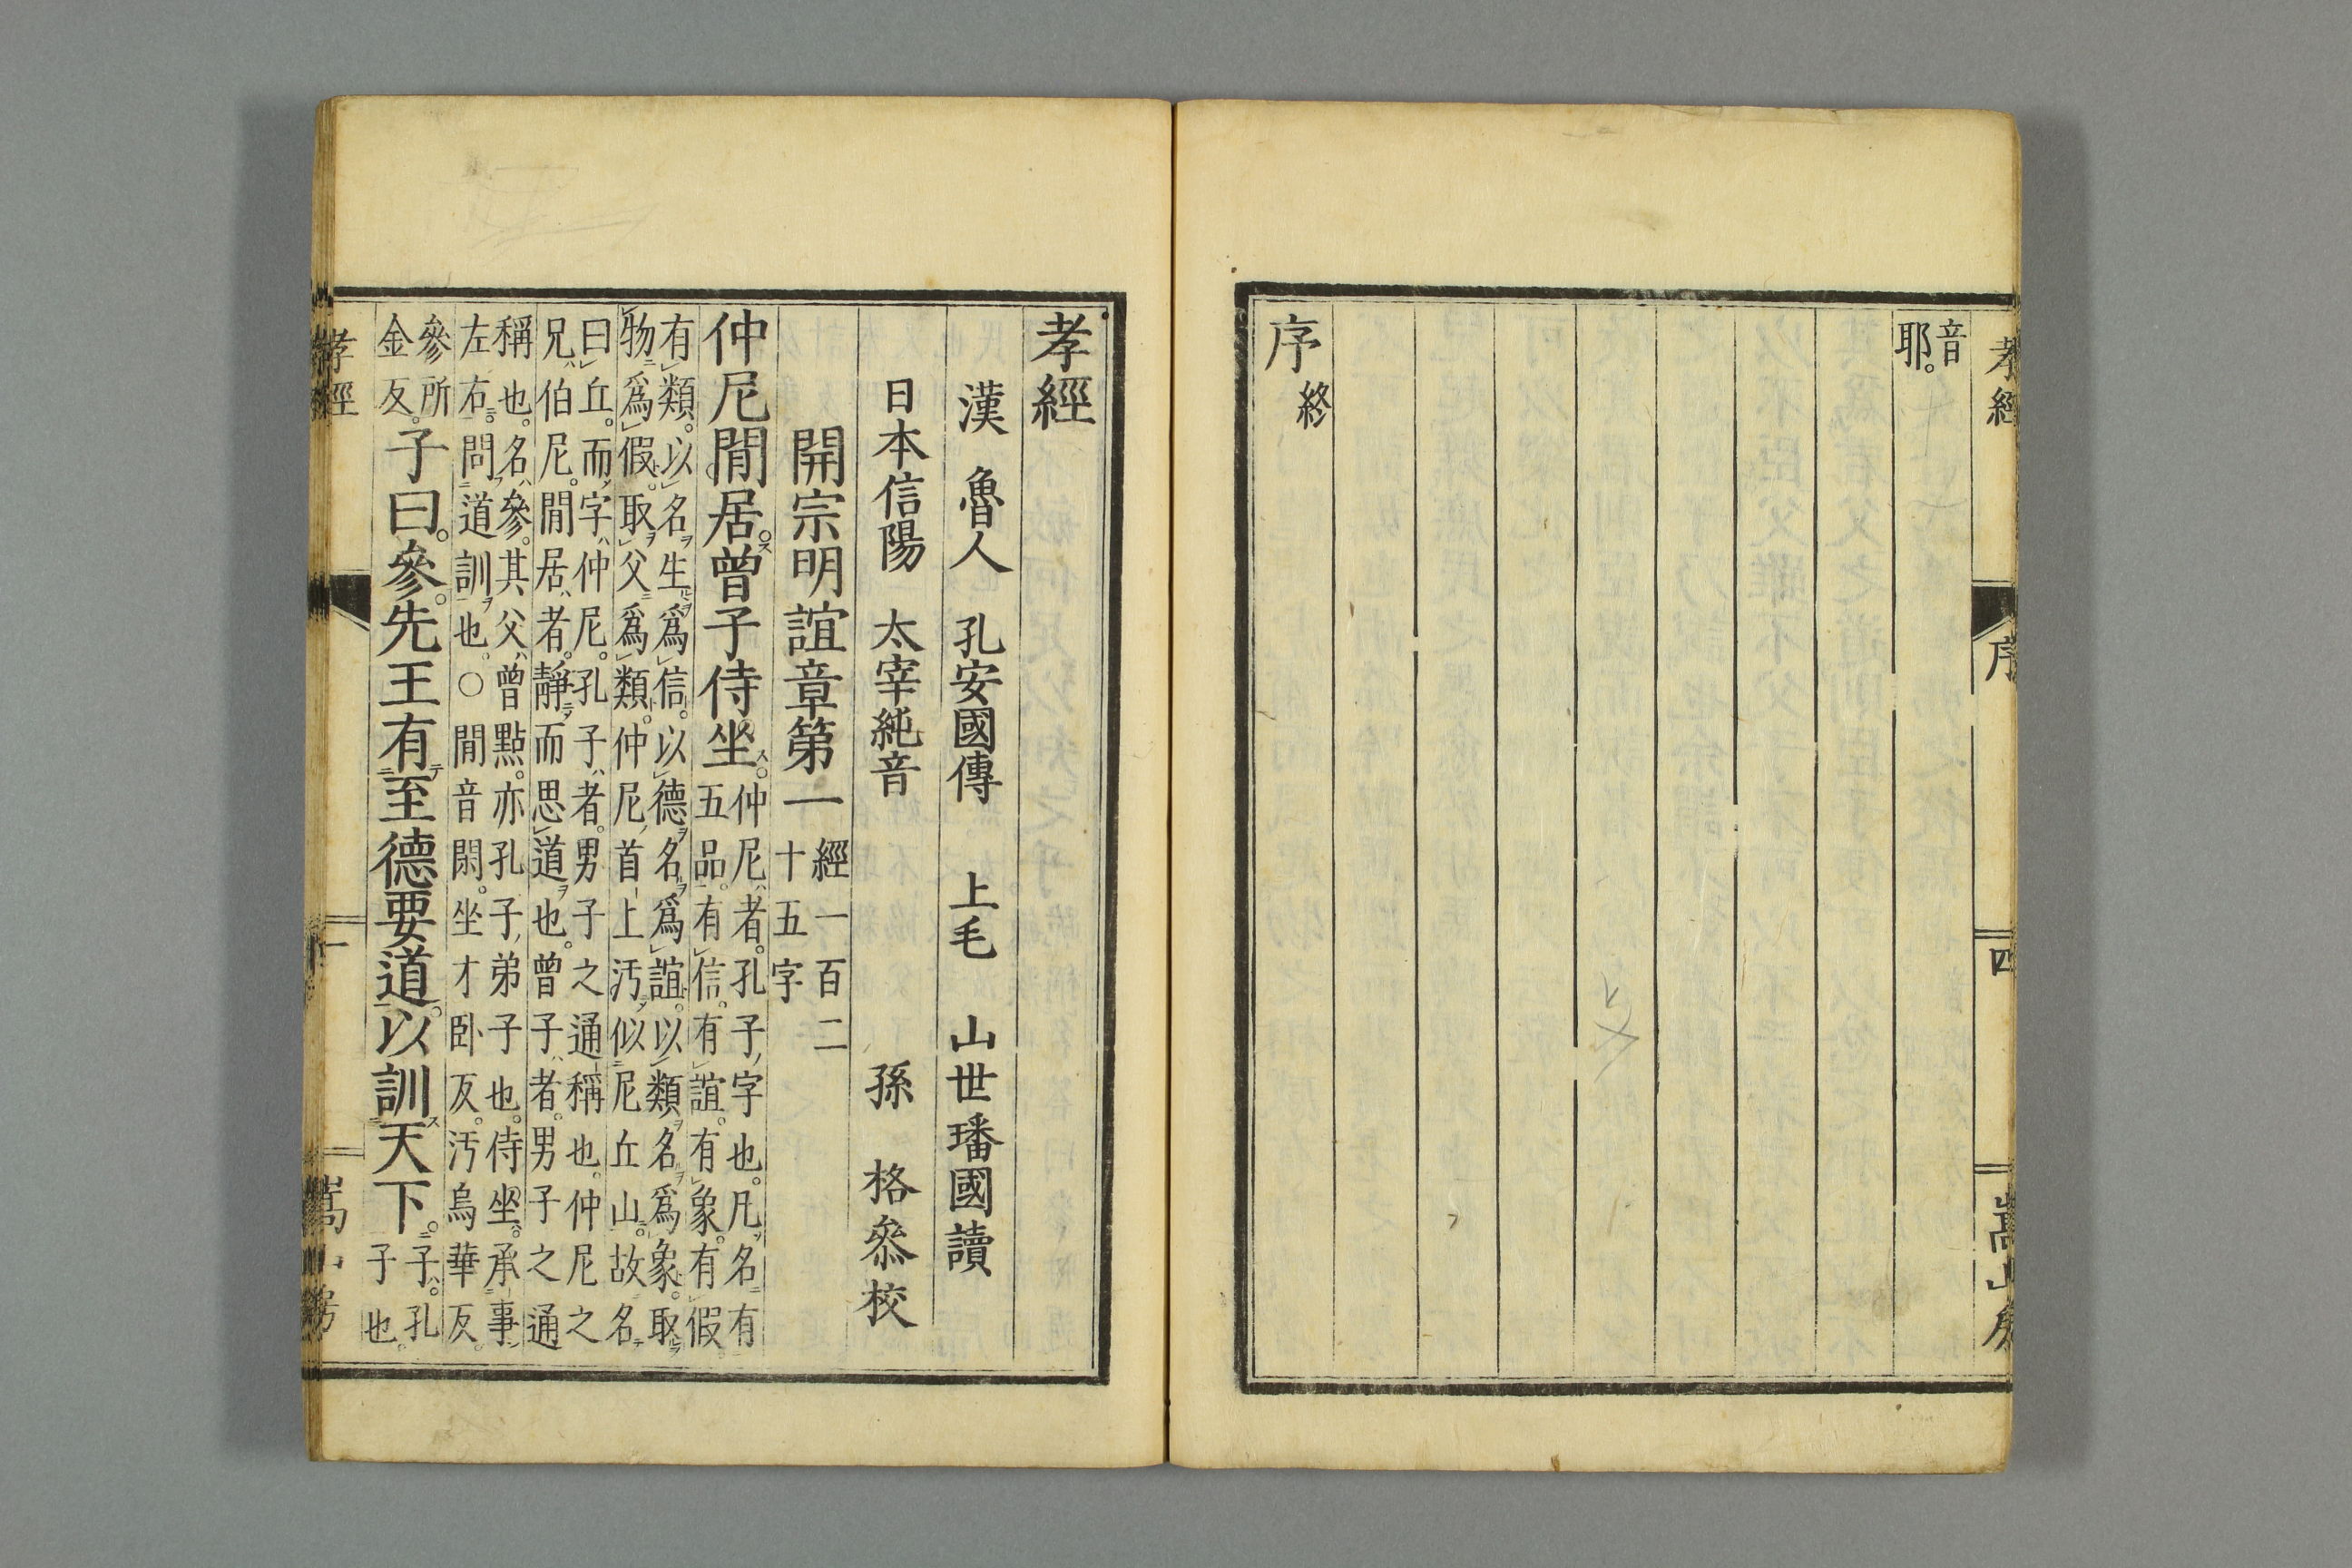 孝經 序 四 嵩山房
音
耶。
序終
孝經
漢 魯人 孔安國傳 上毛 山世璠國讀
日本信陽 太宰純音 孫 格叅校
開宗明誼章第一 經一百二
十五字
仲尼閒居。曾子侍坐。仲尼者。孔子字也。凡名有
五品。有信。有誼。有象。有假
有類。以名生爲信。以德名爲誼。以類名爲象。取
物爲假。取父爲類。仲尼首上汚。似尼丘山。故名
曰丘。而字仲尼。孔子者。男子之通稱也。仲尼之
兄伯尼。閒居者。靜而思道也。曾子者。男子之通
稱也。名參。其父曾點。亦孔子弟子也。侍坐。承事
左右。問道訓也。○閒音閑。坐才卧反。汚烏華反。
參所
金反。
子曰。參。先王有至德要道。以訓天下。子。孔
子也。
孝經 一 嵩山房